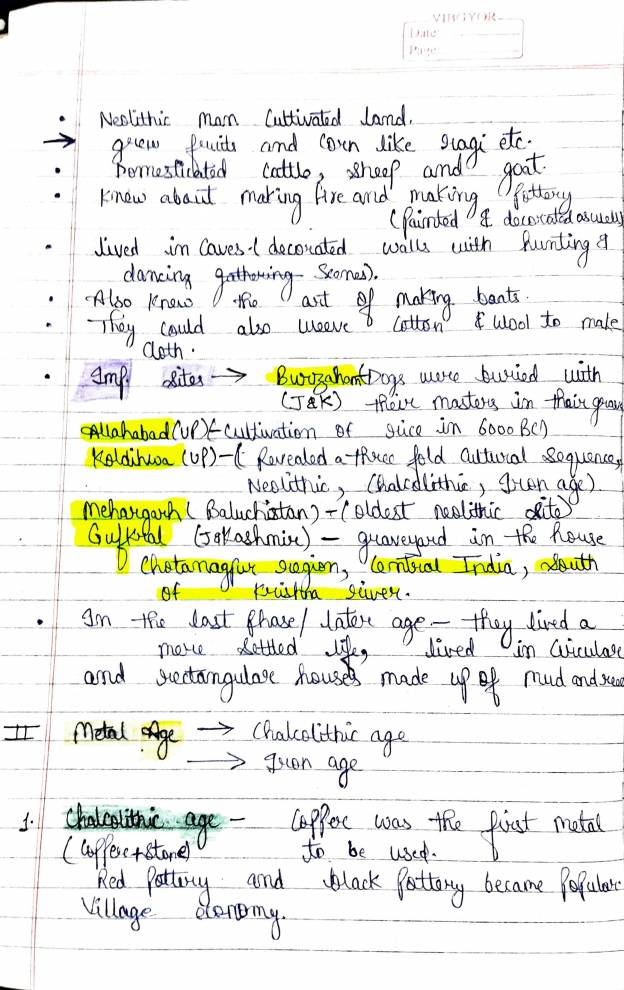 VIBGYOR
Date:
Page:
• Neolithic man cultivated land.
→ grew fruits and corn like ragi etc.
• Domesticated cattle, sheep and goat.
• Knew about making fire and making pottery
(Painted & decorated as well)
• Lived in caves. (decorated walls with hunting &
dancing gathering Scenes).
• Also knew the art of making boats.
• They could also weave cotton & wool to make
cloth.
• Imp. Sites → Burzahom (Dogs were buried with
(J&K) their masters in their grave
Allahabad (UP) (- Cultivation of rice in 6000 BC)
Koldihwa (UP) - ( Revealed a three fold Cultural Sequence,
Neolithic, Chalcolithic, Iron age)
Mehargarh ( Baluchistan) - (oldest neolithic site)
Gufkral (J&Kashmir) - graveyard in the house
Chotanagpur region, Central India, South
of Krishna river.
• In the last phase/ later age - they lived a
more settled life, lived in circular
and rectangular houses made up of mud and ree
II Metal Age → Chalcolithic age
→ Iron age
1. Chalcolithic age - Copper was the first metal
(Copper+stone) to be used.
Red pottery and black pottery became popular
Village economy.